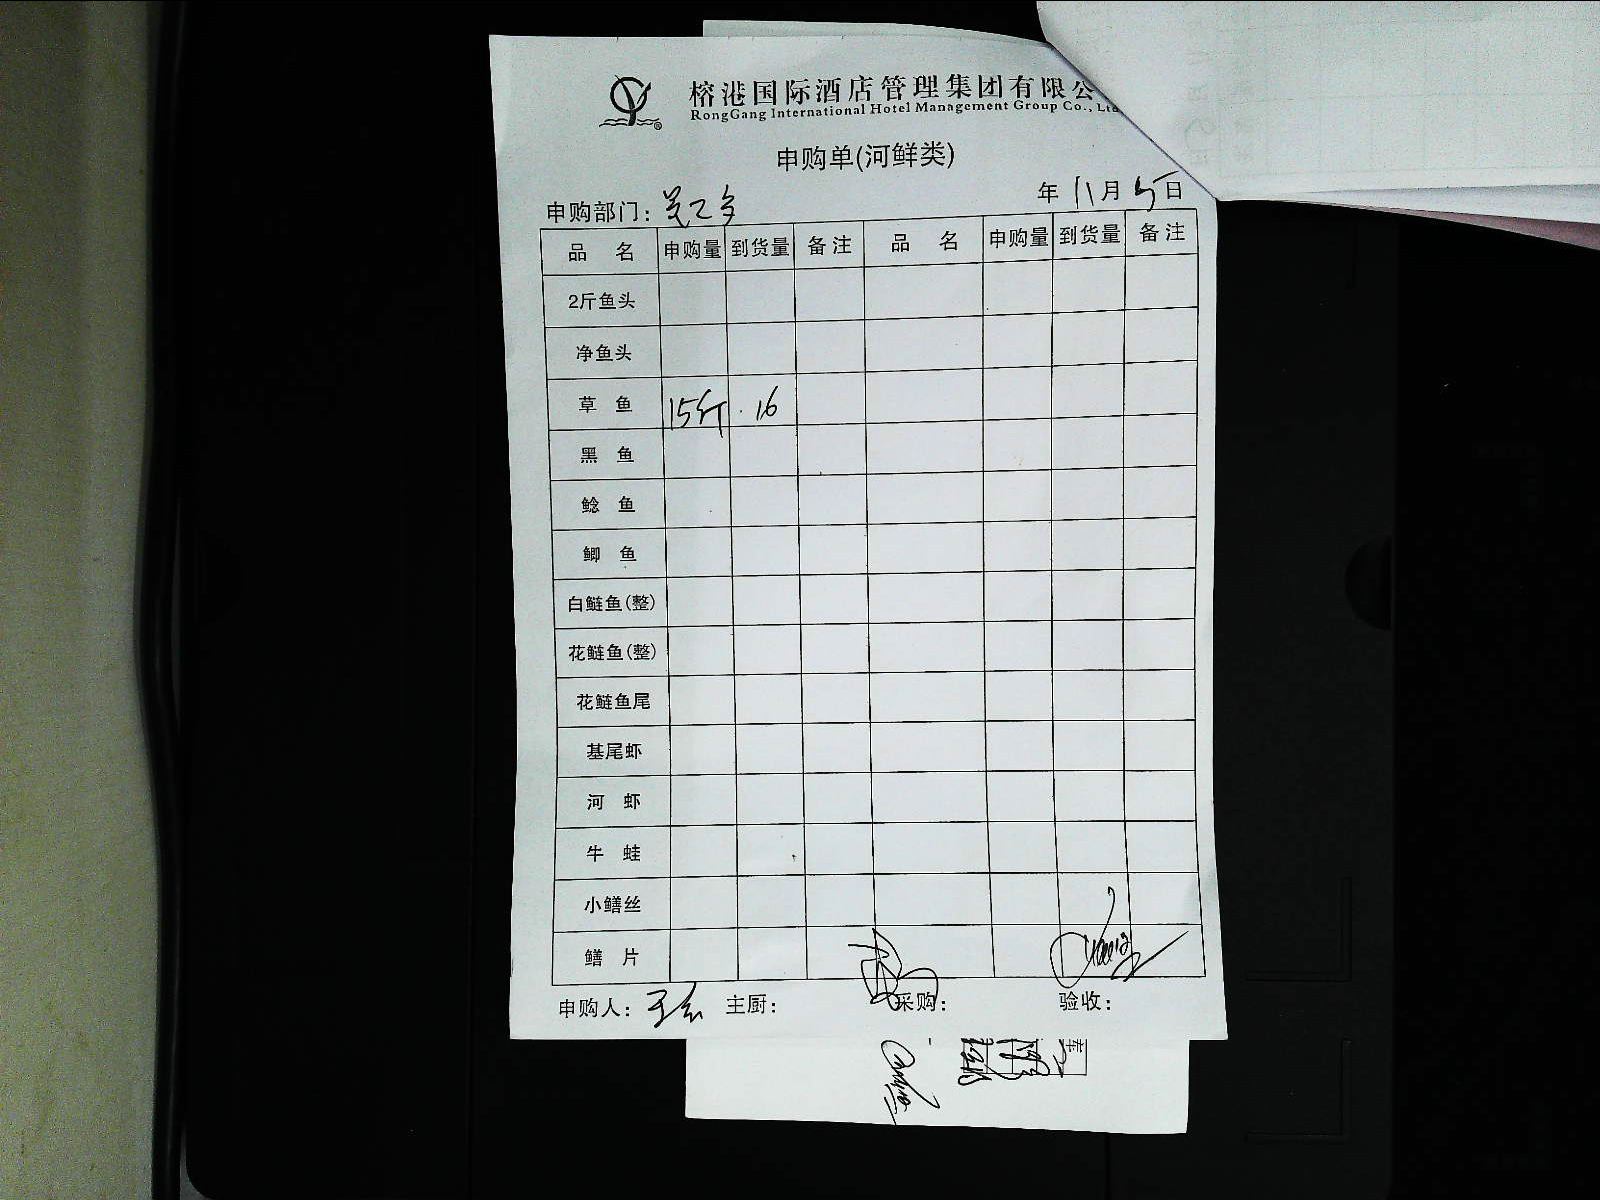 榕港国际酒店管理集团有限公
RongGang International Hotel Management Group Co., Ltd
申购单(河鲜类)
申购部门: 年 11月 5日
品 名 申购量 到货量 备注 品 名 申购量 到货量 备注
2斤鱼头
净鱼头
草 鱼 15斤 16
黑 鱼
鲶 鱼
鲫 鱼
白鲢鱼(整)
花鲢鱼(整)
花鲢鱼尾
基尾虾
河 虾
牛 蛙
小鳝丝
鳝 片
申购人: 主厨: 采购: 验收: